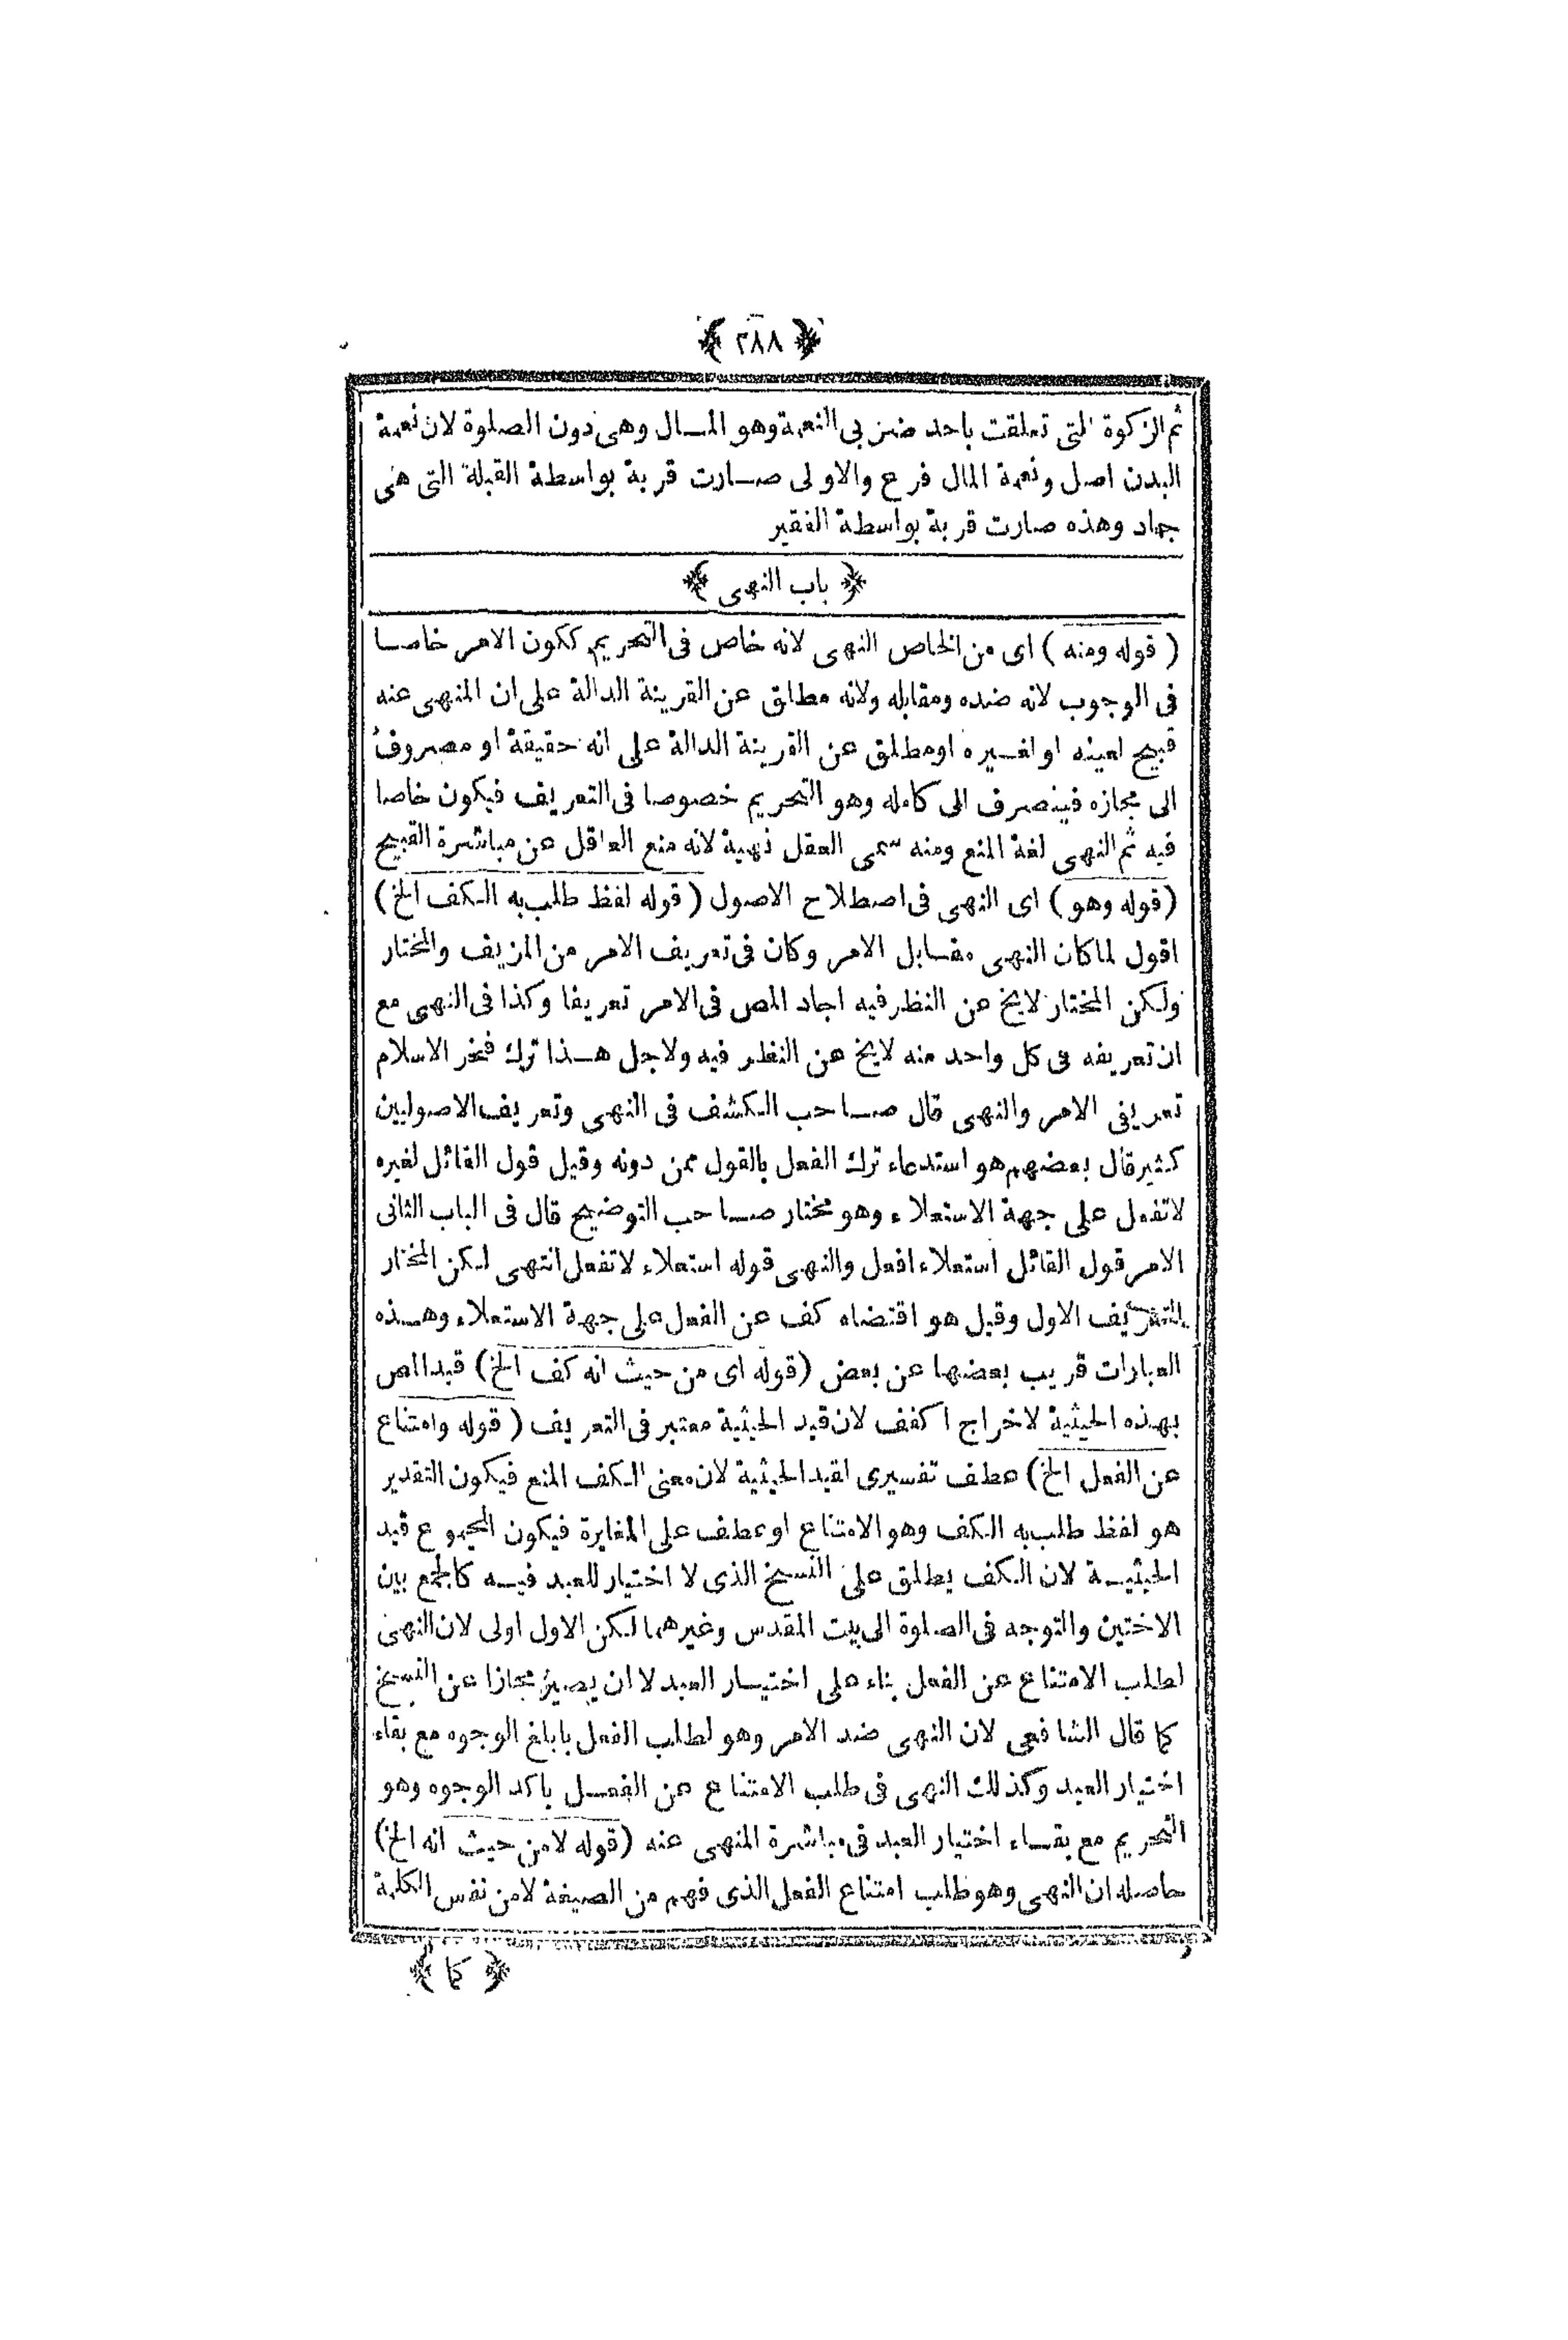 ﴿ ٢٨٨ ﴾
ثم الزكوة التى تعلقت باحد ضربى النعمة وهو المال وهى دون الصلوة لان نعمة
البدن اصل ونعمة المال فرع والاولى صارت قربة بواسطة القبلة التى هى
جماد وهذه صارت قربة بواسطة الفقير
﴿ باب النهى ﴾
( قوله ومنه ) اى من الخاص النهى لانه خاص فى التحريم ككون الامر خاصا
فى الوجوب لانه ضده ومقابله ولانه مطلق عن القرينة الدالة على ان المنهى عنه
قبيح لعينه او لغيره اومطلق عن القرينة الدالة على انه حقيقة او مصروف
الى مجازه فينصرف الى كامله وهو التحريم خصوصا فى التعريف فيكون خاصا
فيه ثم النهى لغة المنع ومنه سمى العقل نهية لانه منع العاقل عن مباشرة القبيح
(قوله وهو ) اى النهى فى اصطلاح الاصول ( قوله لفظ طلب به الكف الخ )
اقول لما كان النهى مقابل الامر وكان فى تعريف الامر من المزيف والمختار
ولكن المختار لايخ عن النظر فيه اجاد المص فى الامر تعريفا وكذا فى النهى مع
ان تعريفه فى كل واحد منه لايخ عن النظر فيه ولاجل هذا ترك فخر الاسلام
تعريفى الامر والنهى قال صاحب الكشف فى النهى وتعريف الاصوليين
كثير قال بعضهم هو استدعاء ترك الفعل بالقول ممن دونه وقيل قول القائل لغيره
لاتفعل على جهة الاستعلاء وهو مختار صاحب التوضيح قال فى الباب الثانى
الامر قول القائل استعلاء افعل والنهى قوله استعلاء لاتفعل انتهى لكن المختار
التعريف الاول وقيل هو اقتضاء كف عن الفعل على جهة الاستعلاء وهذه
العبارات قريب بعضها عن بعض (قوله اى من حيث انه كف الخ) قيد المص
بهذه الحيثية لاخراج اكفف لان قيد الحيثية معتبر فى التعريف ( قوله وامتناع
عن الفعل الخ) عطف تفسيرى لقيد الحيثية لان معنى الكف المنع فيكون التقدير
هو لفظ طلب به الكف وهو الامتناع اوعطف على المغايرة فيكون المجموع قيد
الحيثية لان الكف يطلق على النسخ الذى لا اختيار للعبد فيه كالجمع بين
الاختين والتوجه فى الصلوة الى بيت المقدس وغيرهما لكن الاول اولى لان النهى
لطلب الامتناع عن الفعل بناء على اختيار العبد لا ان يصير مجازا عن النسخ
كما قال الشافعى لان النهى ضد الامر وهو لطلب الفعل بابلغ الوجوه مع بقاء
اختيار العبد وكذلك النهى فى طلب الامتناع عن الفعل باكد الوجوه وهو
التحريم مع بقاء اختيار العبد فى مباشرة المنهى عنه (قوله لامن حيث انه الخ)
حاصله ان النهى وهو طلب امتناع الفعل الذى فهم من الصيغة لامن نفس الكلمة
﴿ كما ﴾